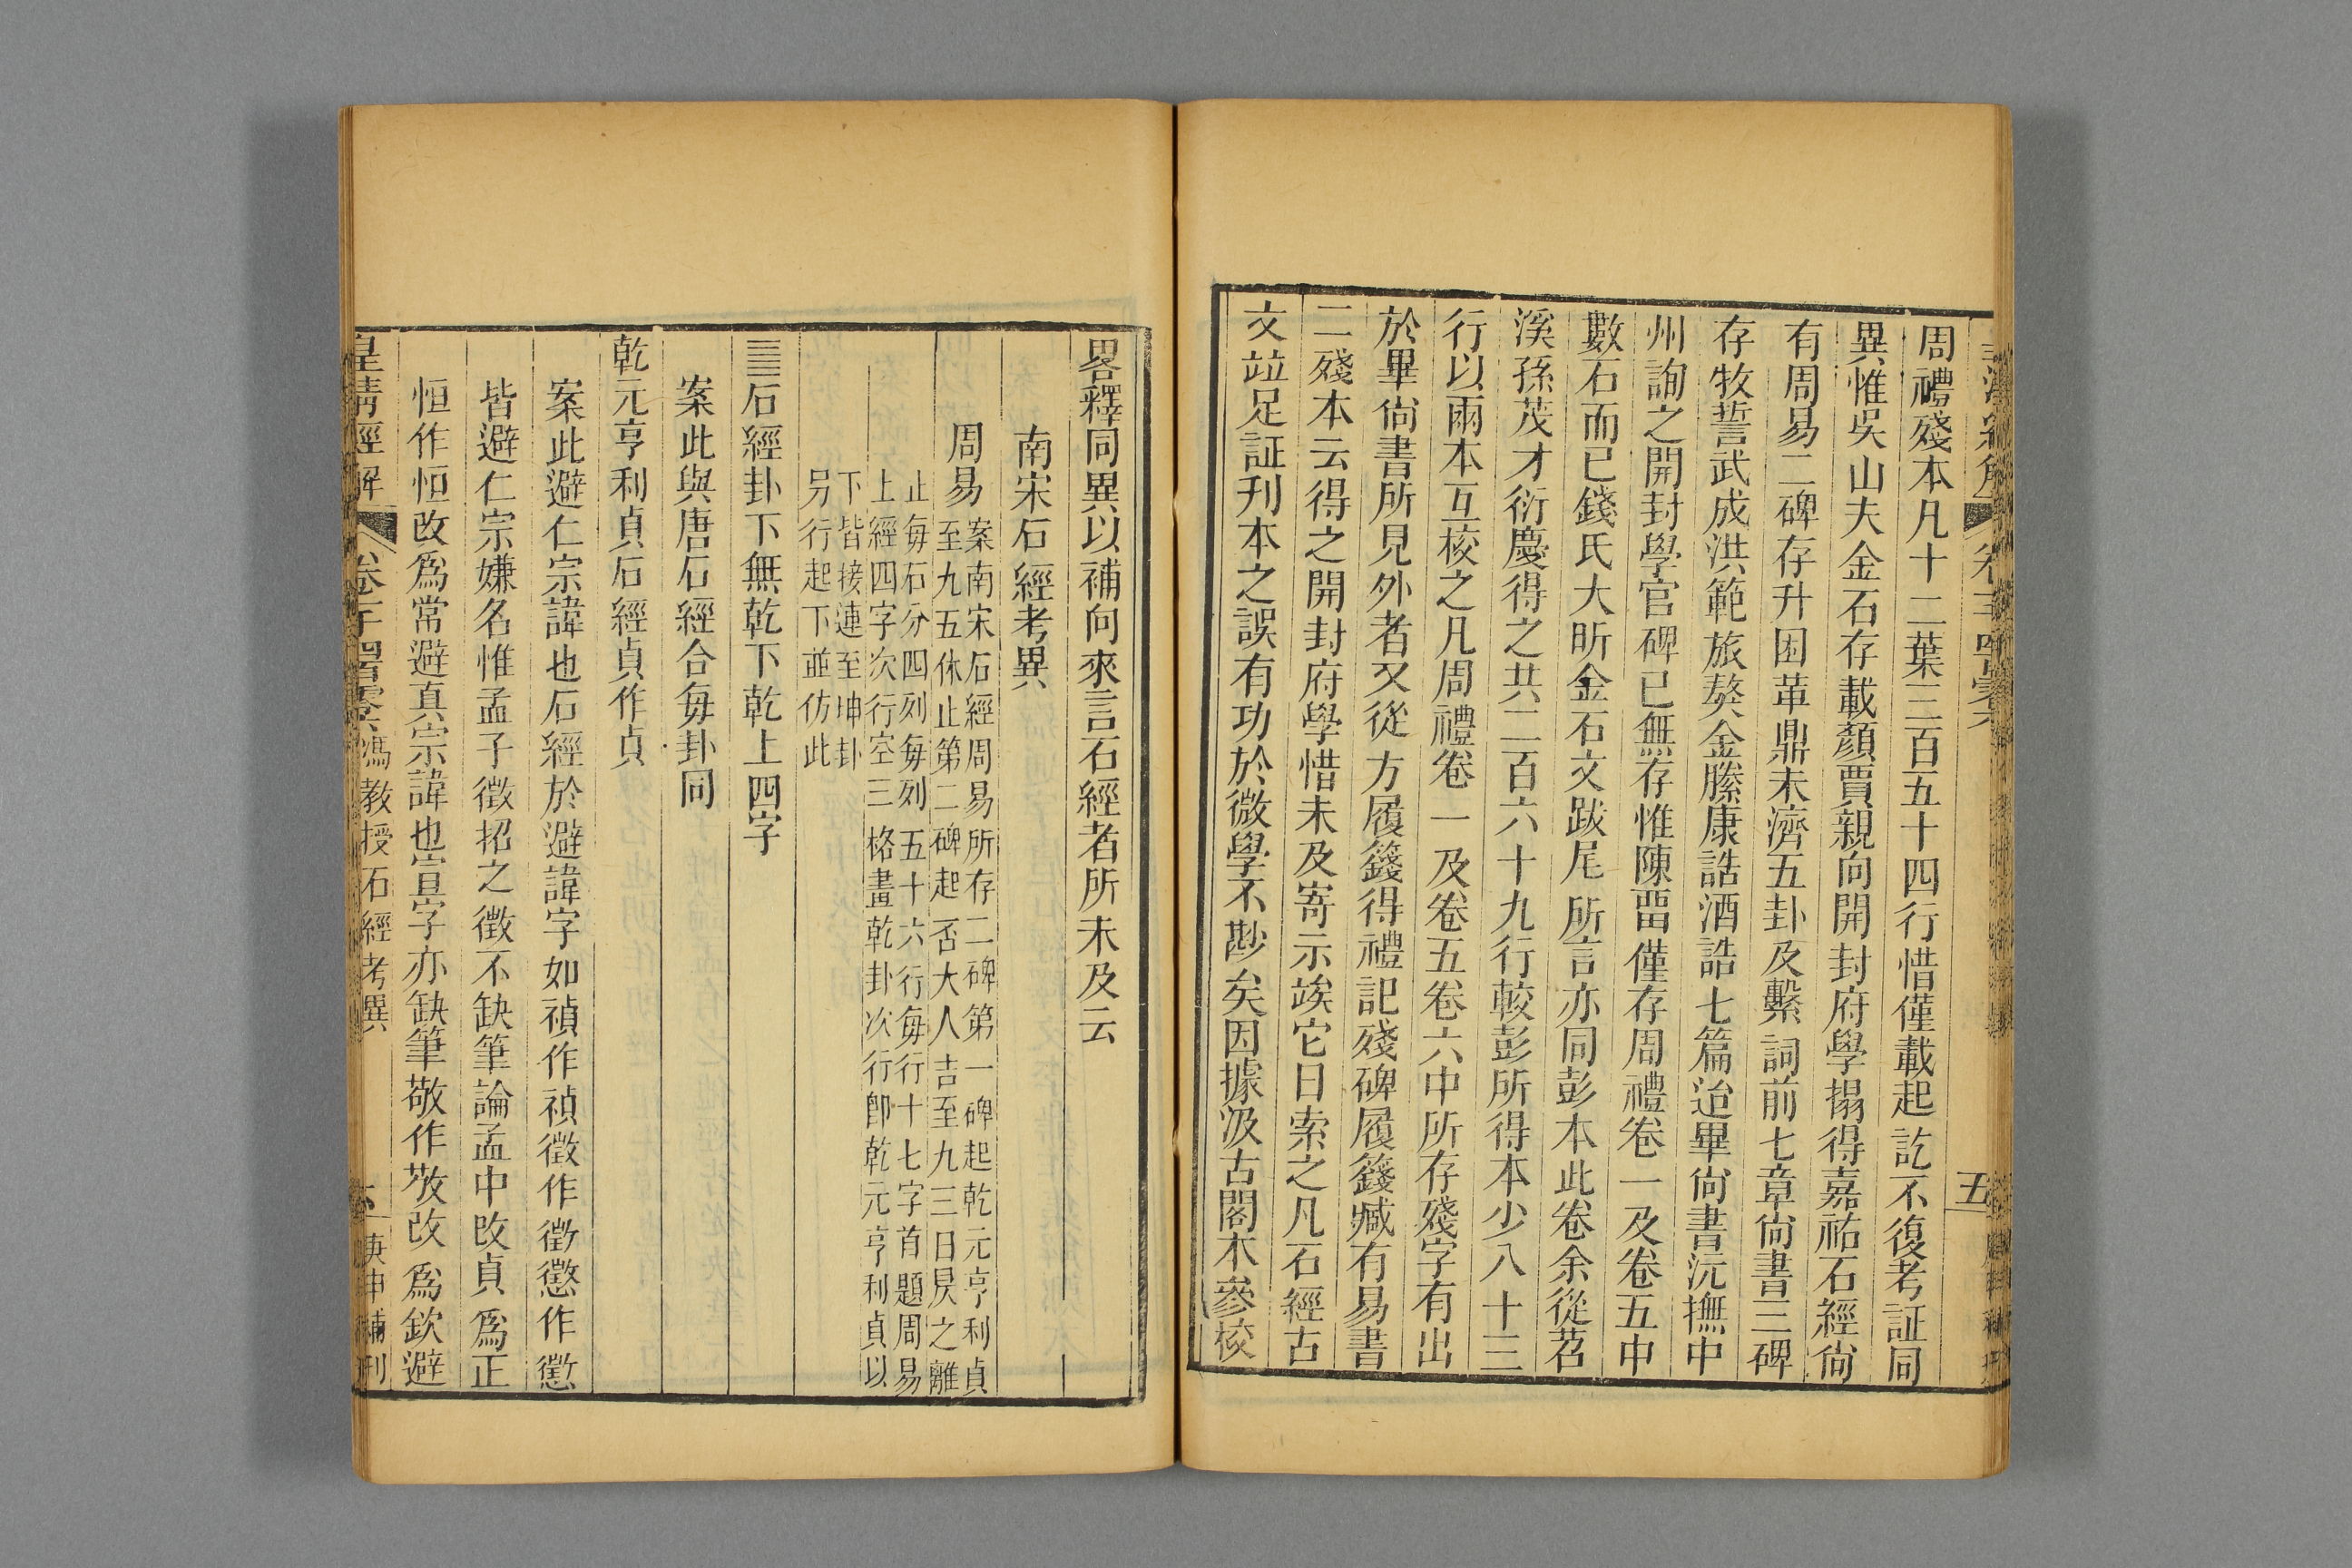 五
周禮殘本凡十二葉三百五十四行惜僅載起訖不復考証同
異惟吳山夫金石存載顏賈親向開封府學搨得嘉祐石經尙
有周易二碑存升困革鼎未濟五卦及繫詞前七章尙書三碑
存牧誓武成洪範旅獒金縢康誥酒誥七篇迨畢尙書沅撫中
州詢之開封學官碑已無存惟陳畱僅存周禮卷一及卷五中
數石而已錢氏大昕金石文跋尾所言亦同彭本此卷余從苕
溪孫茂才衍慶得之共二百六十九行較彭所得本少八十三
行以兩本互校之凡周禮卷一及卷五卷六中所存殘字有出
於畢尙書所見外者又從方履籛得禮記殘碑履籛藏有易書
二殘本云得之開封府學惜未及寄示竢它日索之凡石經古
文竝足証刊本之誤有功於微學不尠矣因據汲古閣本參校
畧釋同異以補向來言石經者所未及云
南宋石經考異
周易
案南宋石經周易所存二碑第一碑起乾元亨利貞
至九五休止第二碑起否大人吉至九三日昃之離
止每石分四列每列五十六行每行十七字首題周易
上經四字次行空三格畫乾卦次行卽乾元亨利貞以
下皆接連至坤卦
另行起下並仿此
䷀石經卦下無乾下乾上四字
案此與唐石經合每卦同
乾元亨利貞石經貞作貞
案此避仁宗諱也石經於避諱字如禎作禎徵作徵懲作懲
皆避仁宗嫌名惟孟子徵招之徵不缺筆論孟中改貞爲正
恒作恒改爲常避真宗諱也宣字亦缺筆敬作敬改爲欽避
皇淸經解
馮教授石經考異
六
庚申補刊